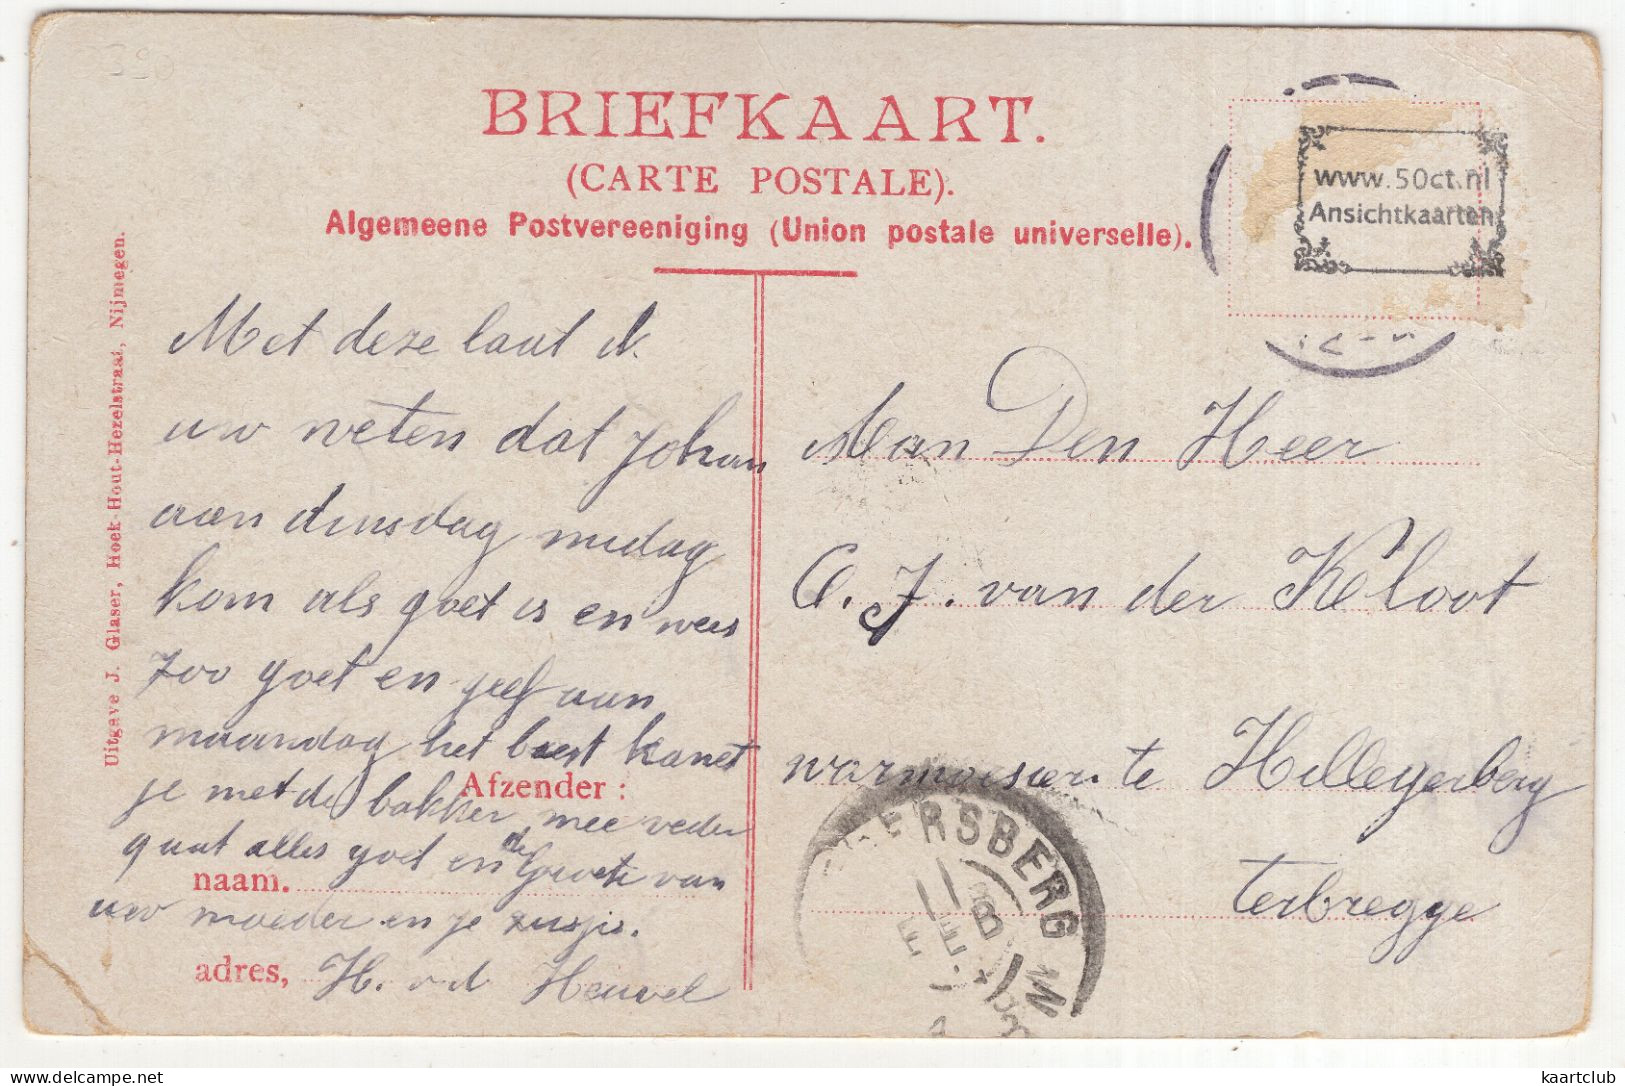 BRIEFKAART.
(CARTE POSTALE).
Algemeene Postvereeniging (Union postale universelle).
www.50ct.nl
Ansichtkaarten
Uitgave J. Glaser, Hoek-Hout-Hezelstraat, Nijmegen.
Met deze laat ik
uw weten dat Johan
aan dinsdag middag
kom als goet is en wees
zoo goet en geef aan
maandag het beest kanet
je met de bakker mee veder
gaat alles goet en de Groete van
uw moeder en je zusjis.
H. v d Heuvel
Afzender:
naam.
adres,
Aan Den Heer
C. J. van der Kloot
warmoesier te Hillegerberg
Terbregge
ERSBERG